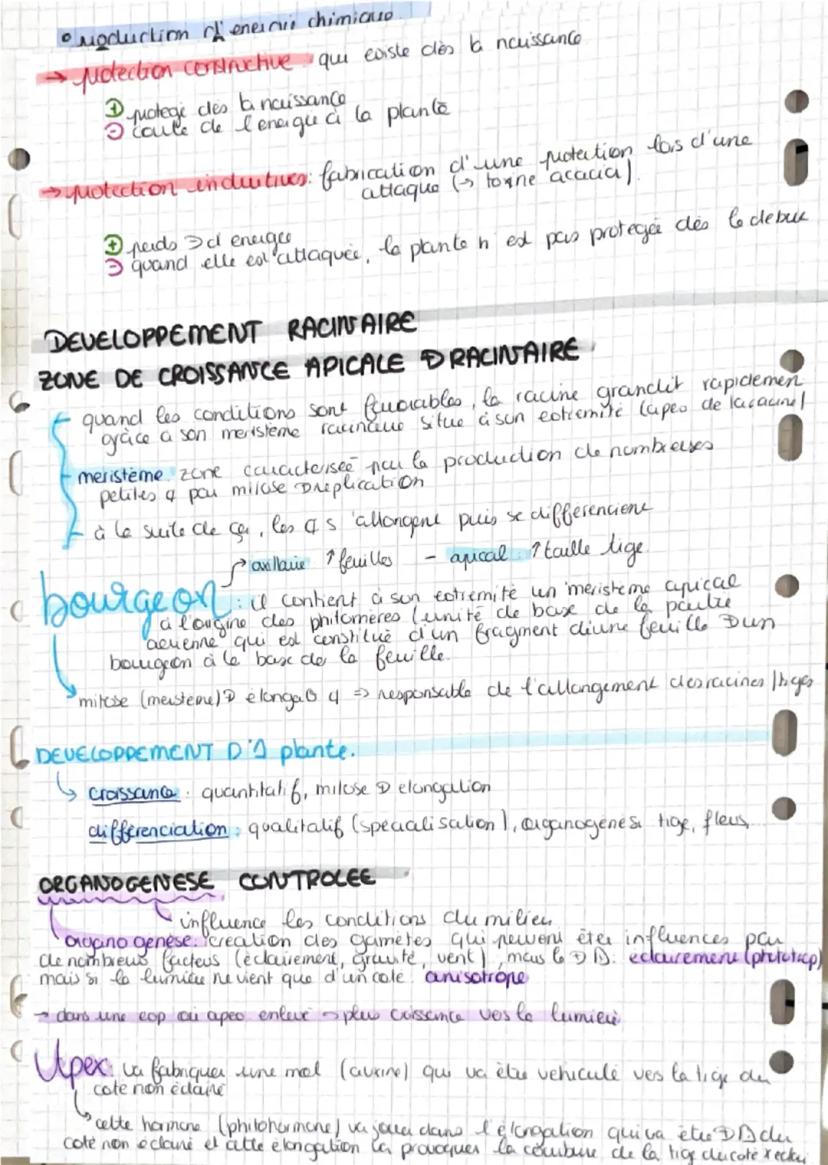 • production d'energie chimique
→ protection constructive qui existe dès la naissance
⊕ protege des la naissance
⊖ coute de l'energie à la plante
→ protection inductives: fabrication d'une protection lors d'une
attaque (→ toxine acacia).
⊕ perds d energie
⊖ quand elle est attaquée, la plante n'est pas protegée dès le debut
DEVELOPPEMENT RACINAIRE
ZONE DE CROISSANCE APICALE RACINAIRE
quand les conditions sont favorables, la racine grandit rapidemen
grâce a son meristème racinaire situe à son extremité (apex de la racine)
meristème zone caracterisée par la production de nombreuses
petites par mitose replication
à la suite de ça, les s'allongent puis se differencient
axillaire ↑ feuilles - apical ↑ taille tige
bourgeon: il contient à son extremité un meristeme apical
à l'origine des phitomères (unité de base de la partie
aerienne qui est constitué d'un fragment d'une feuille un
bourgeon à la base de la feuille.
mitose (meristeme) elongat⁰ ⇒ responsable de l'allongement des racines / tiges
DEVELOPPEMENT D'1 plante.
↳ croissance: quantitatif, mitose elongation
différenciation: qualitatif (spécialisation), organogenese tige, fleurs,
ORGANOGENESE CONTROLEE
influence les conditions du milieu
organogenèse: creation des gamètes qui peuvent être influences par
de nombreux facteurs (éclairement, gravité, vent), mais le eclairement (phototrop)
mais si la lumière ne vient que d'un coté: anisotrope
→ dans une exp où apex enlevé → plus croissance vers la lumiere
Apex: va fabriquer une mol (auxine) qui va etre vehiculé vers la tige du
coté non éclairé
↳ cette hormone (phitohormone) va jouer dans l'élongation qui va être du
coté non éclairé et cette élongation va provoquer la courbure de la tige du coté